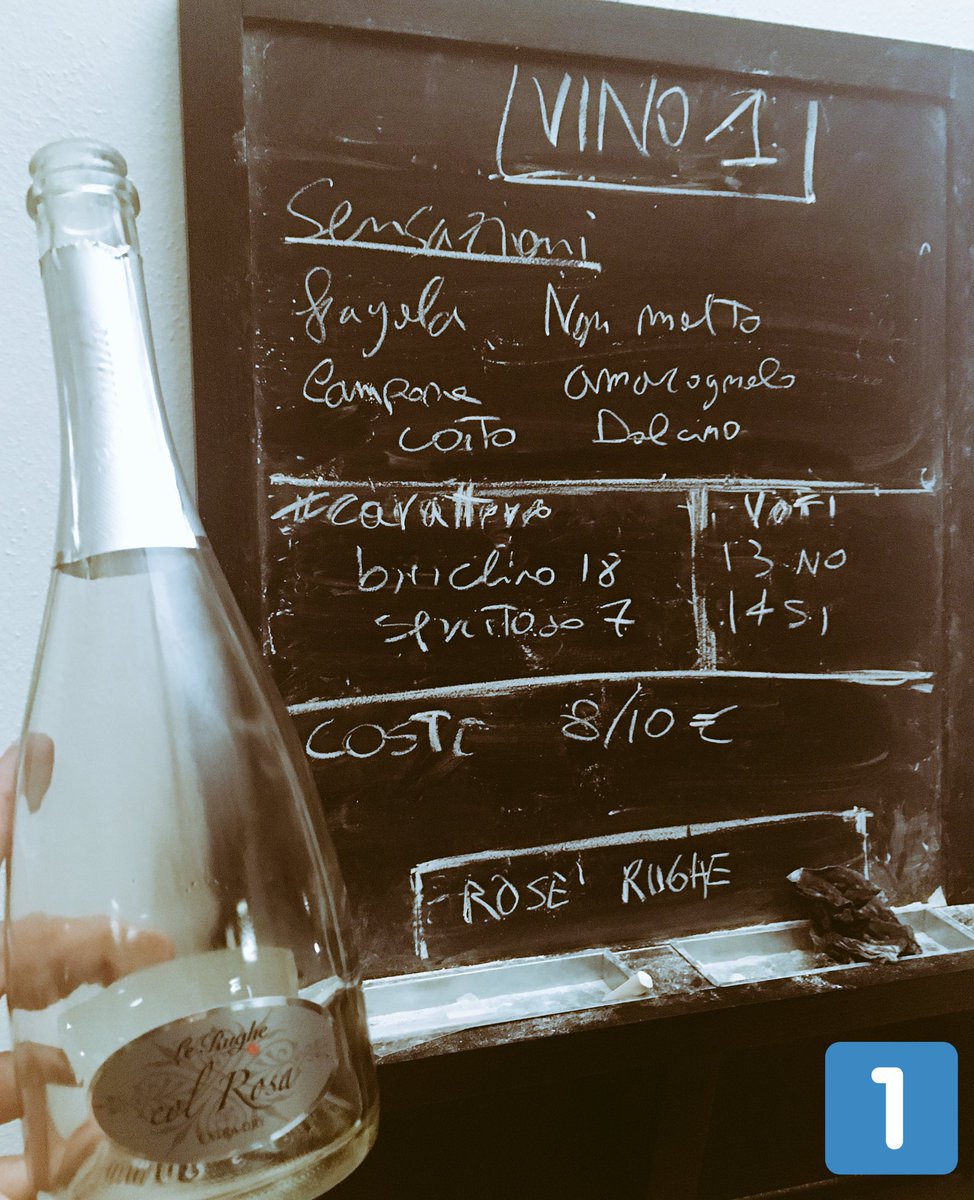 VINO 1
Sensazioni
fragola Non molto
Lampone amarognolo
corto Dolcino
carattere VOTI
birichino 18 13 NO
spiritoso 7 14 SI
COSTI 8/10 €
ROSE' RUGHE
le Rughe
col Rosa
1